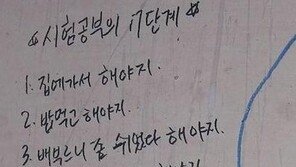 ☆시험공부의 17단계☆
1. 집에가서 해야지.
2. 밥먹고 해야지.
3. 배부르니 좀 쉬었다 해야지.
해야지